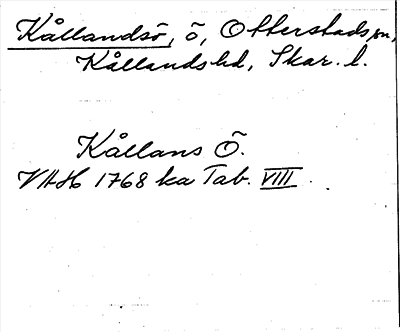 Kållandsö, ö, Otterstads sn,
Kållands hd, Skar. l.
Kållans Ö.
VAH 1768 ka Tab. VIII.